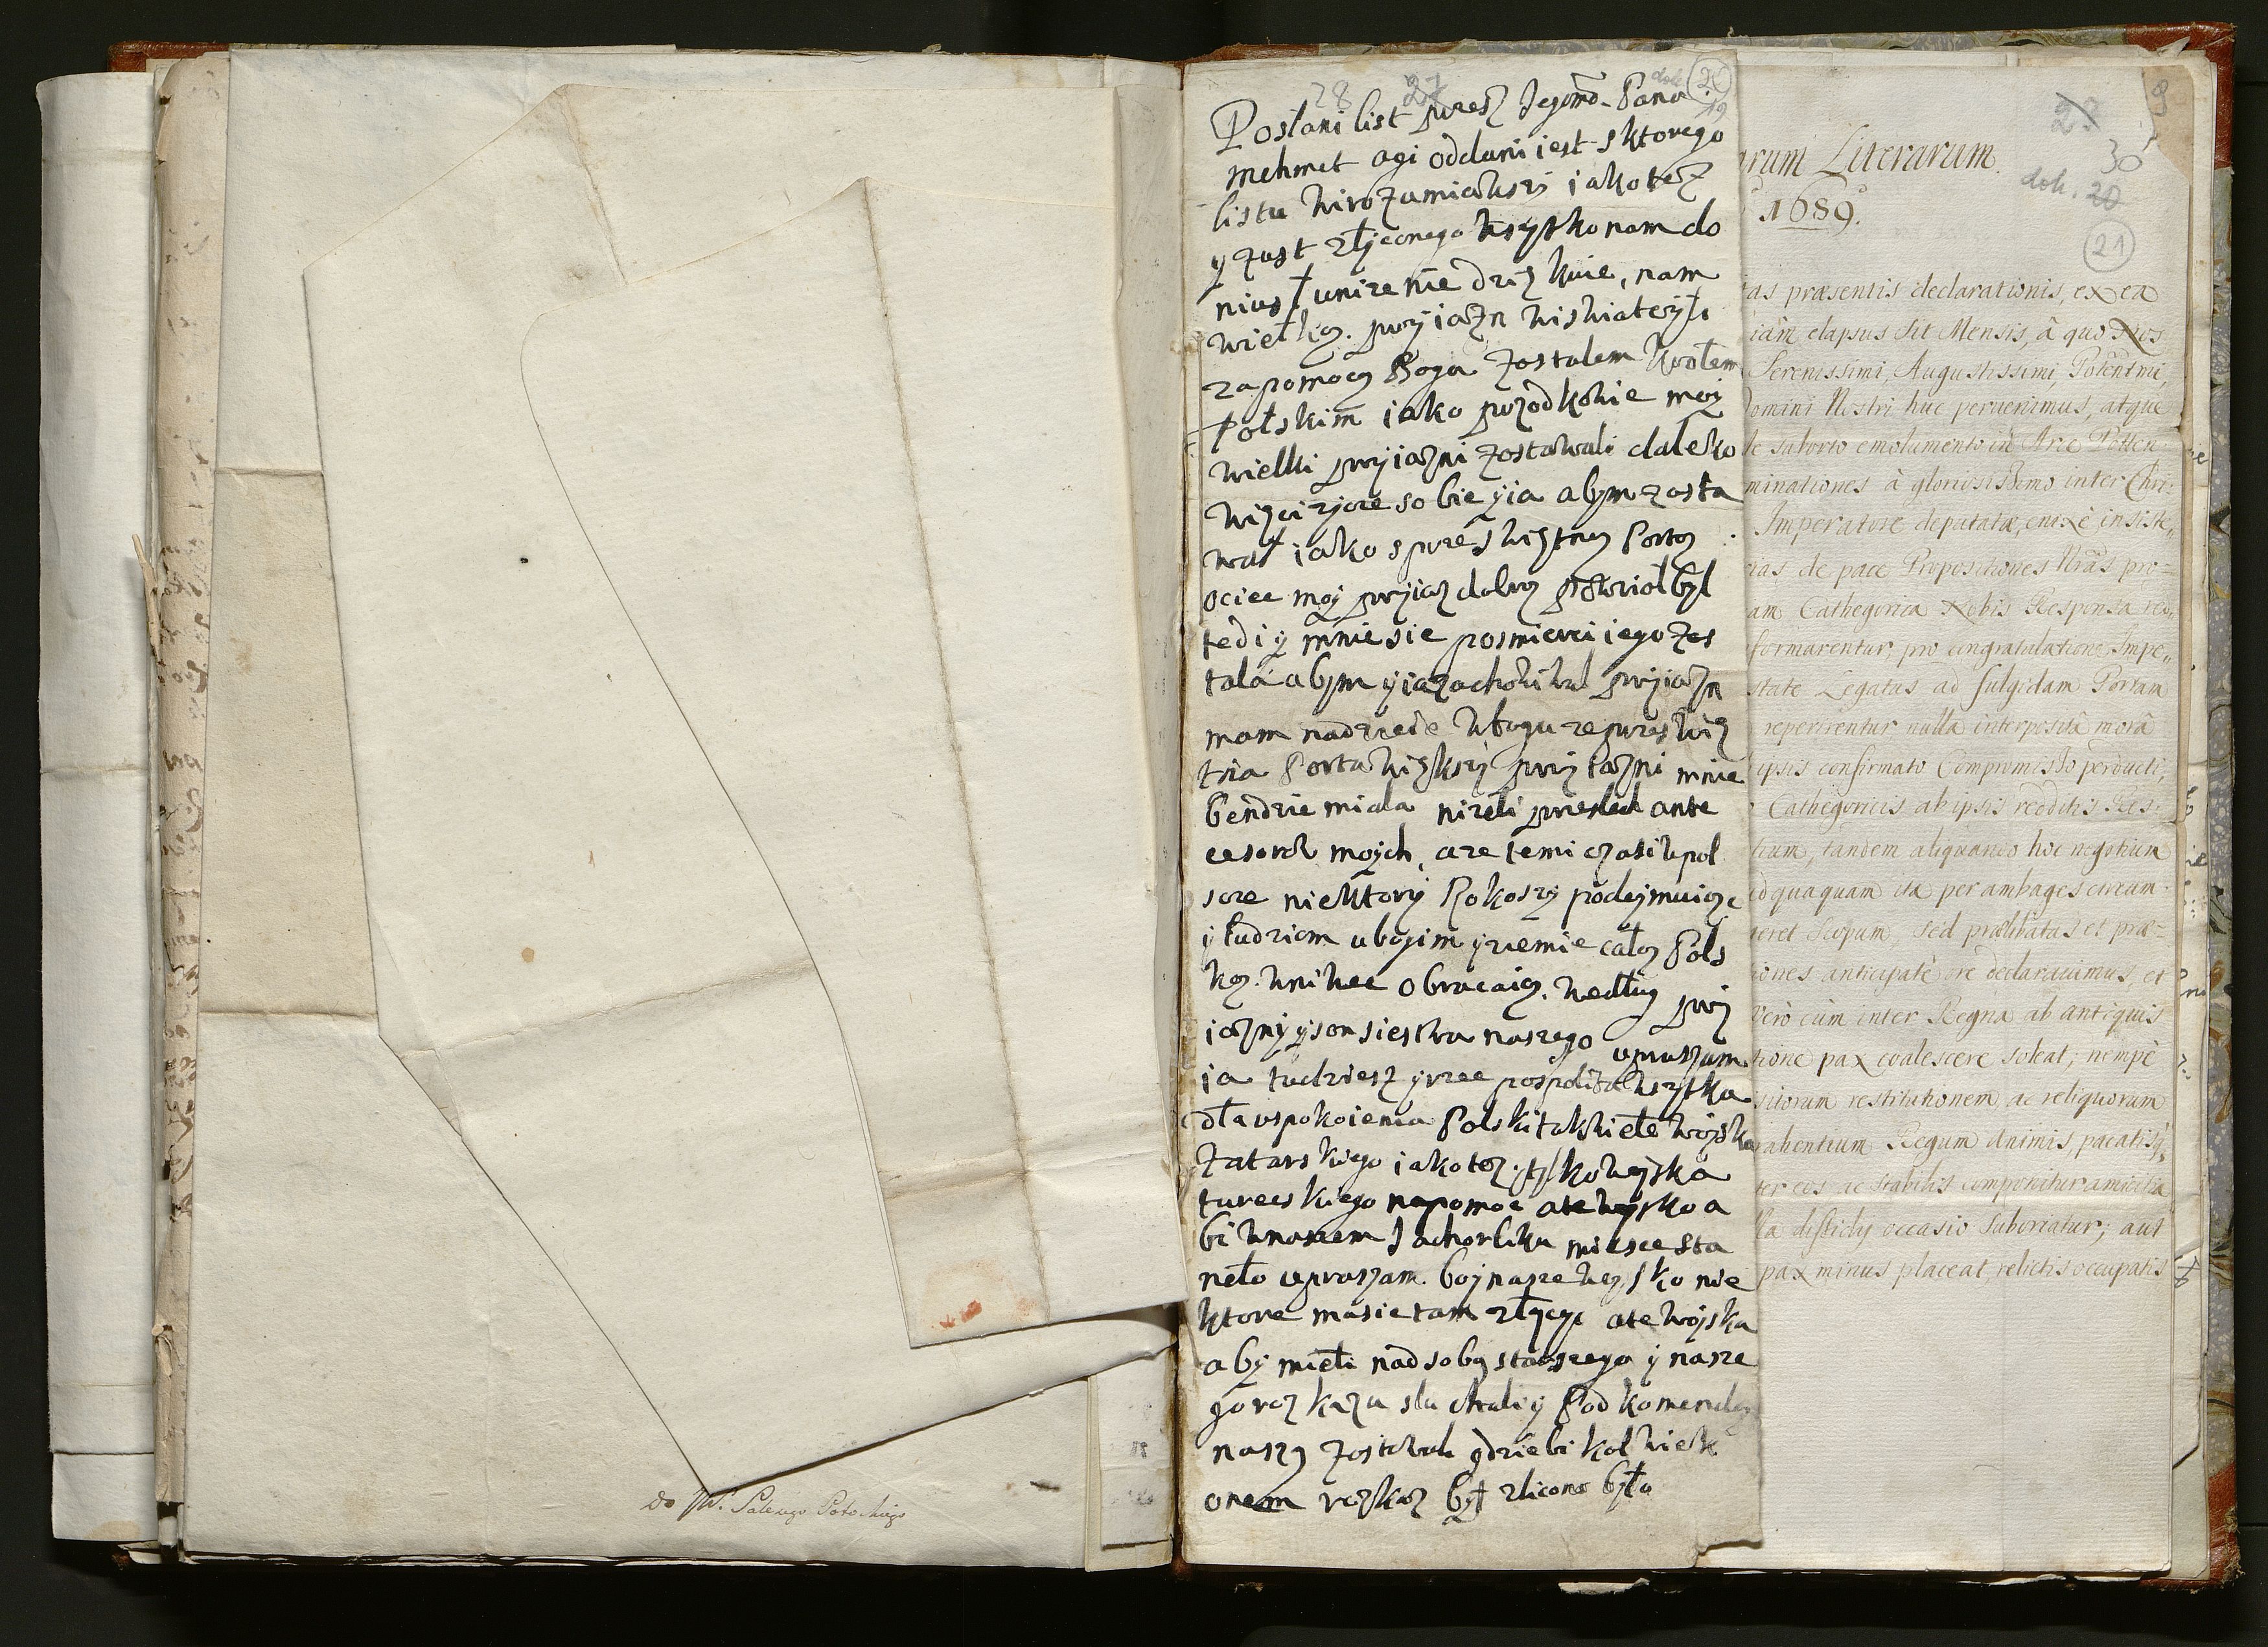 do JW. Salezego Potockiego
28 27
dok 20
19
Posłani list przesz Jegomd. Pana
mehmet agi oddani iest s ktorego
listu wirozumiawszi iako tesz
y zust zljeconego wsytko nam do
nius t unize nie dziękuie, nam
wielką. przyiazn wiswiatczyłi
za pomocą Boga zostalem krolem
Polskim iako przodkowie moy
wielki przyiazni zostawali daleko
więci zjcze sobie yia abym zosta
wał iako s przeświętną Portą
ociec moy przyiaz dobrą prowiół był
tedi y mnie sie posmierci iego zos
tala abym yia zachowiwał przyiazn
mam nadzieie w bogu ze prześwię
tna Porta większy przyiazni mnie
bendzie miala nizeli przesłech ante
cesorow moych, aze temi czasi w pol
scze niektory Rokoszy podeymuiące
y ludziom ubogim y ziemie całą Pols
ką. wniwec obracaią. według przy
iazny y sonsiestwa naszego upraszam
ia tudziesz y rzec pospolita wszytka
dla uspokoienia Polski tak wiele woyska
Tatarskiego iako tez. tylko woyska
tureckiego na pomoc ate woysko a
bi w naszem Zachorliku miesce sta
neło upraszam. boy nasze woysko nie
ktore masie tam złączyc ate woyska
aby mieli nad sobą starszego y nasze
go rozkazu sluchali y Pod komendą
naszą zostawali gdziebi kolwiek
onem rozkaz był zlicono było
23 9
30
dok. 20
21
arum Literarum.
1689.
tas præsentis declarationis, ex ea
iam elapsus sit Mensis, à quo Nos
Serenissimi, Augustissimi, Potentmi,
Domini Nostri huc pervenimus, atque
le suborto emolumento in Arce Potten
minationes à gloriosissimo inter Chri:
Imperatore deputatæ, enixè insiste,,
rias de pace Propositiones Nrãs pro=
am Cathegorica Nobis Responsa red,,
formarentur, pro congratulatione Impe,,
state Legatus ad fulgidam Portam
reperirentur nulla interposita morâ
ipsis confirmato Compromisso perducti,
Cathegoricis ab ipsis redditis Res:
tium, tandem aliquando hoc negotium
edquaquam ita per ambages circum:
neret Scopum, sed prælibatas et præ=
iones anticipatè ore declaravimus, et
Verò cùm inter Regna ab antiquis
tione pax coalescere soleat, nempè
sitorum restitutionem ac reliquorum
rahentium Regum Animis, pacatisq,
ter eos ac stabilis componitur amicitia
la discidij occasio suboriatur; aut
pax minus placeat, relictis occupatis